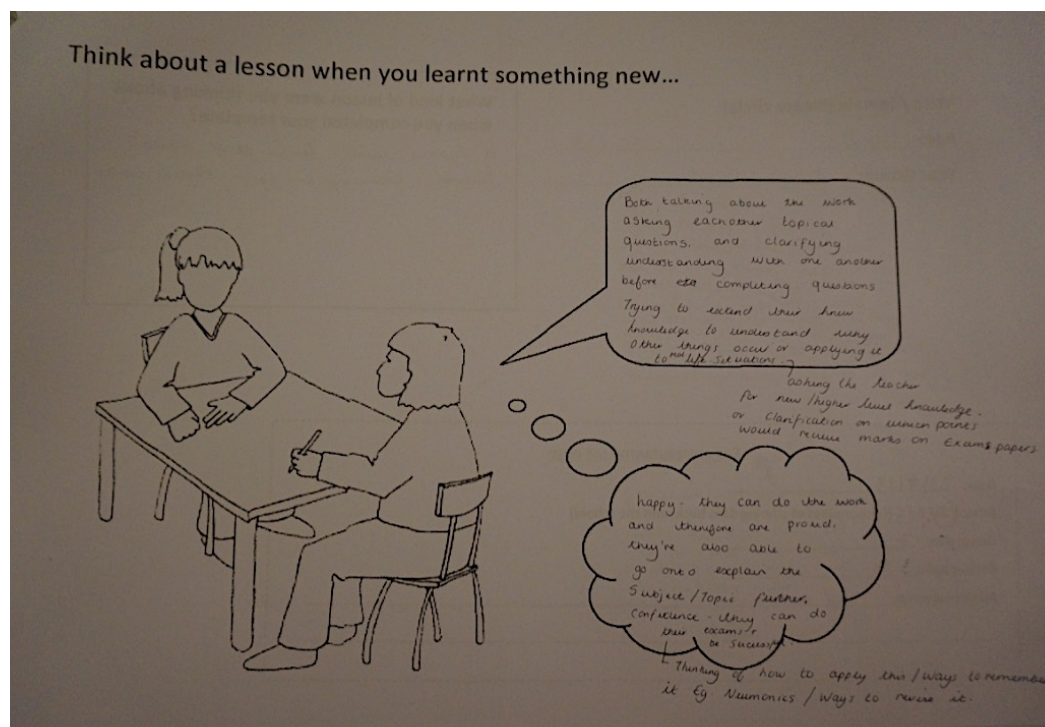 Think about a lesson when you learnt something new...
Both talking about the work
asking eachother topical
questions, and clarifying
understanding with one another
before completing questions
Trying to extend their knew
knowledge to understand why
other things occur or applying it
to real life situations.
asking the teacher
for new/higher level knowledge.
or clarification on which points
would recieve marks on Exams papers
happy - they can do the work
and therefore are proud.
they're also able to
go onto explain the
Subject/Topic further.
confidence - they can do
their exams +
be successful.
Thinking of how to apply this/ways to remember
it Eg. Neumonics / Ways to revise it.